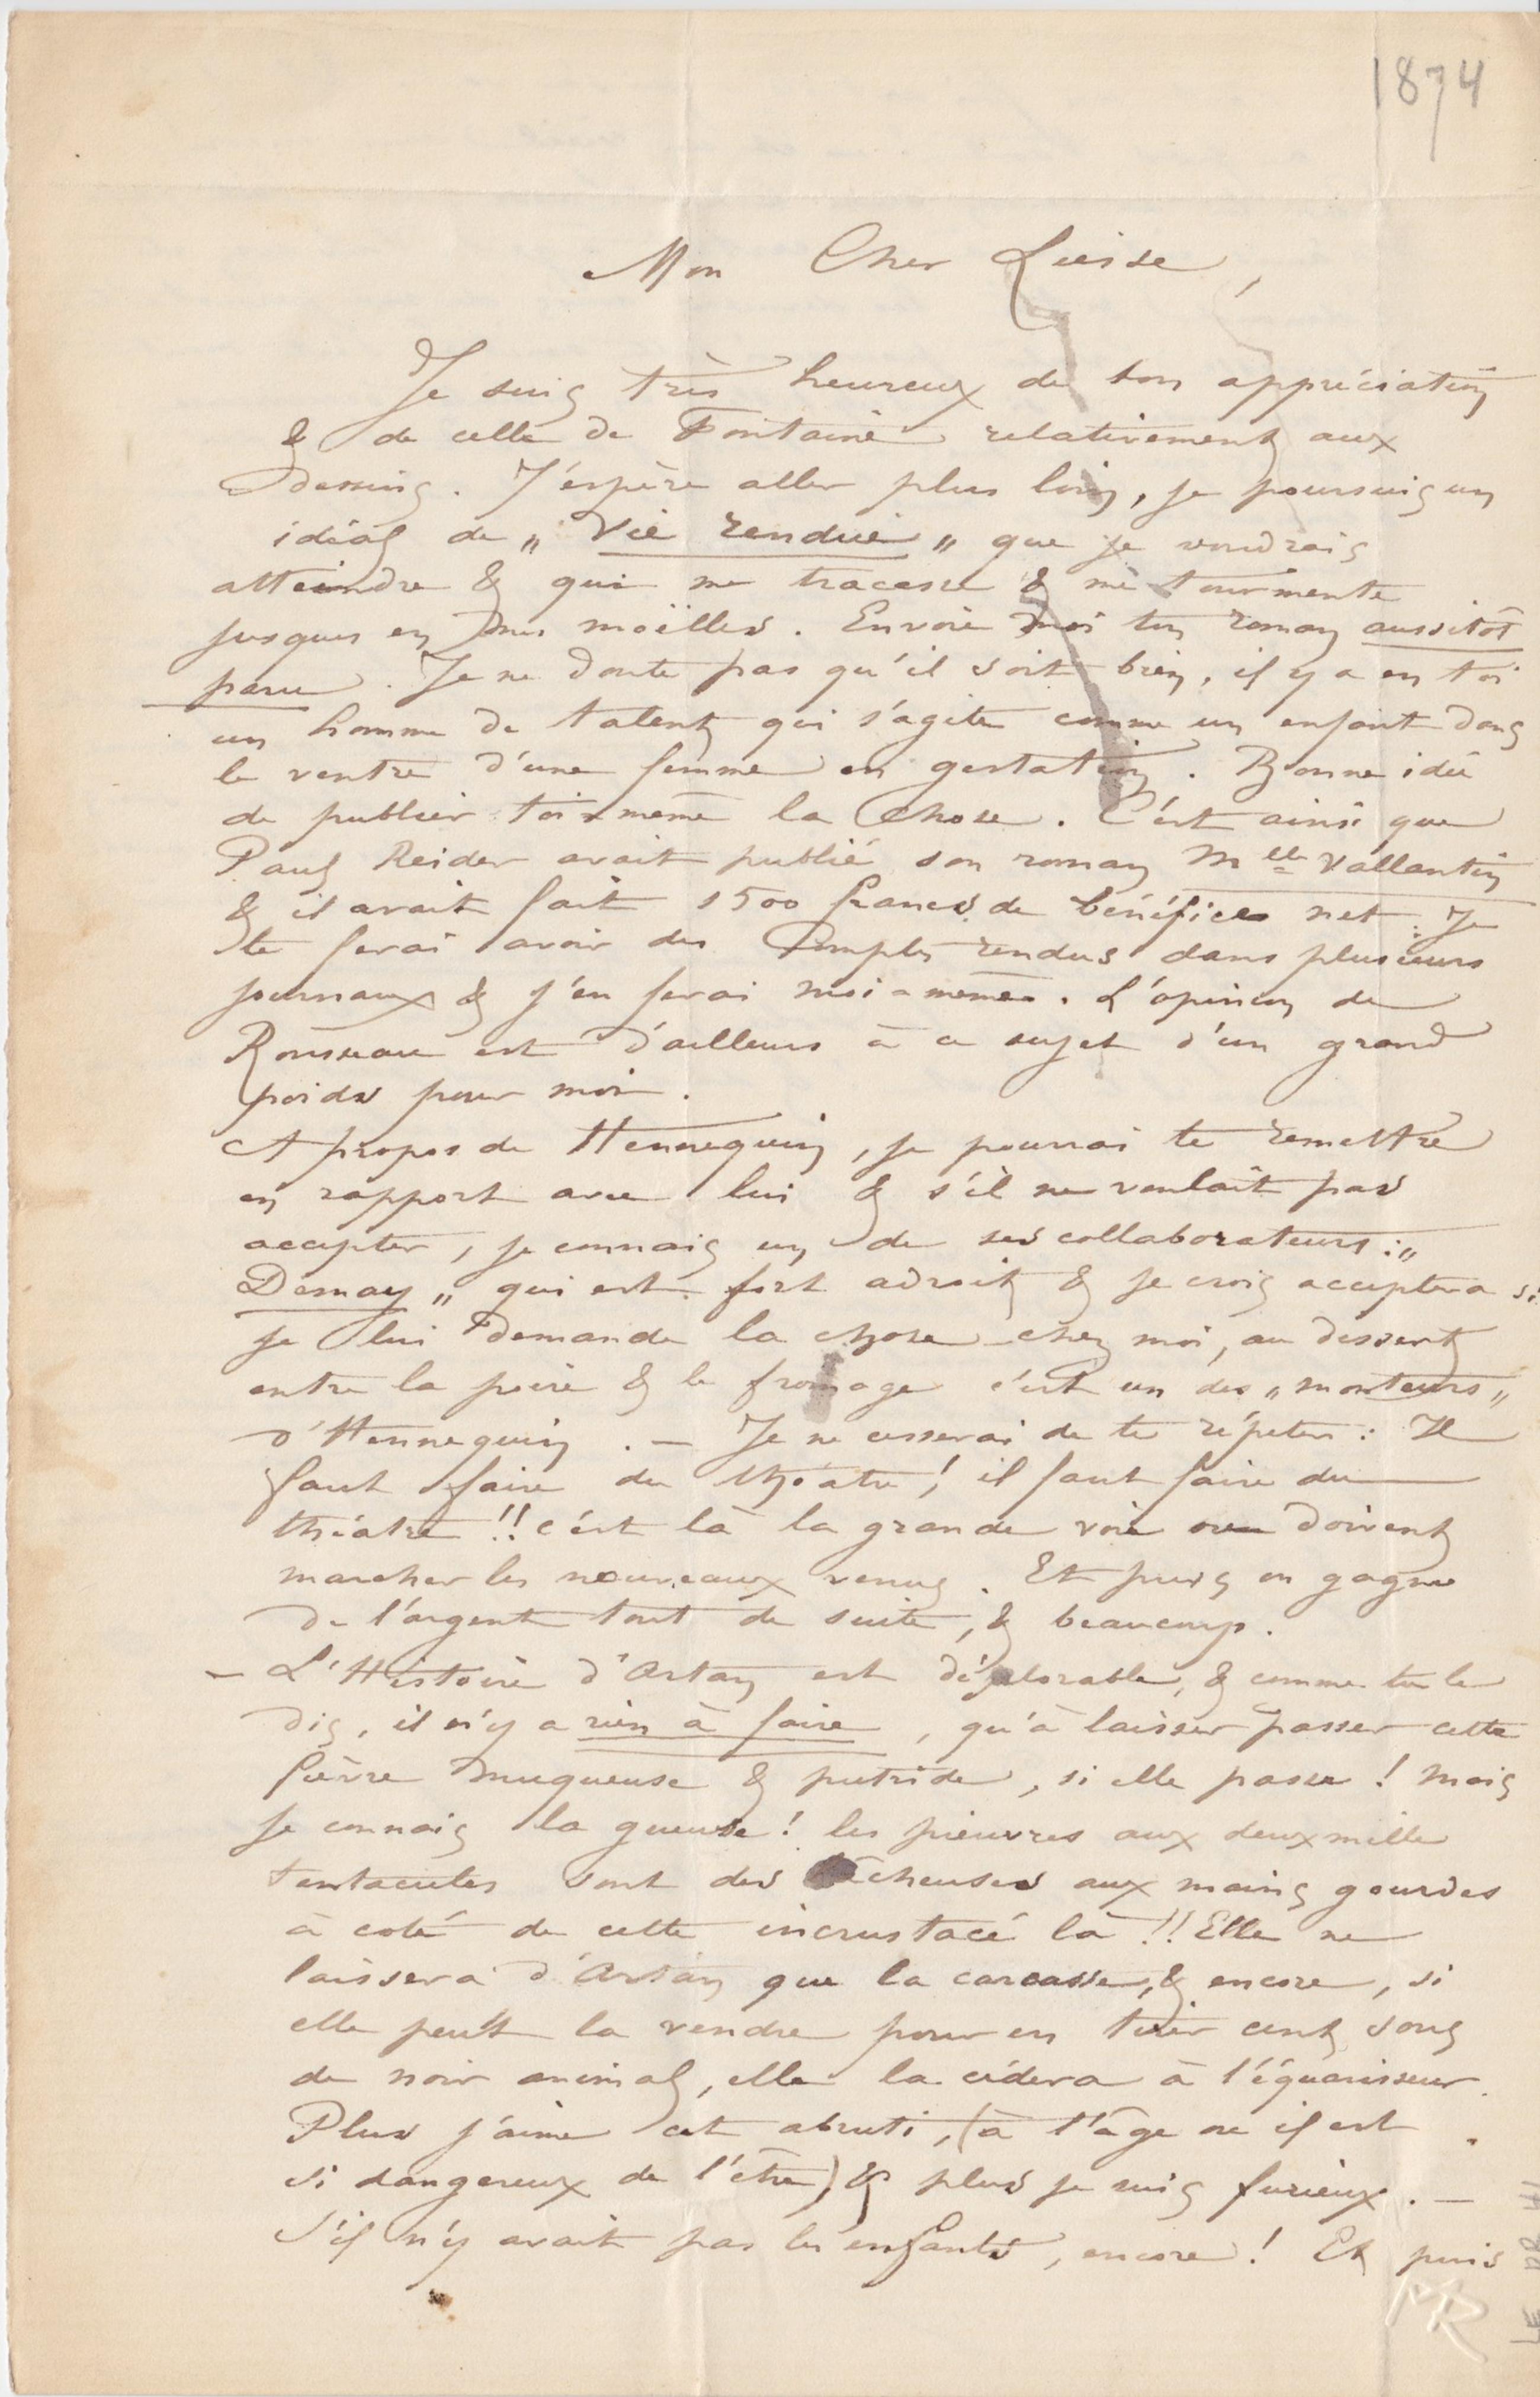 1874
Mon Cher Liesse,
Je suis très heureux de ton appréciation
& de celle de Fontaine relativement aux
dessins. J'espère aller plus loin, je poursuis un
idéal de „ Vie rendue „ que je voudrais
atteindre & qui me tracasse & me tourmente
jusques en mes moëlles. Envoie moi ton roman aussitôt
paru. Je ne doute pas qu'il soit bien, il y a en toi
un homme de talent qui s'agite comme un enfant dans
le ventre d'une femme en gestation. Bonne idée
de publier toi-même la chose. C'est ainsi que
Paul Reider avait publié son roman Mlle Vallantin
& il avait fait 1500 francs de bénéfices net. Je
te ferai avoir des comptes rendus dans plusieurs
journaux & j'en ferai moi-même. L'opinion de
Rousseau est d'ailleurs à ce sujet d'un grand
poids pour moi.
A propos de Hennequin, je pourrai te remettre
en rapport avec lui & s'il ne voulait pas
accepter, je connais un de ses collaborateurs : „
Demay „ qui est fort adroit & je crois acceptera si
je lui demande la chose chez moi, au dessert
entre la poire & le fromage c'est un des „ monteurs „
d'Hennequin. — Je ne cesserai de te répéter : Il
faut faire du théâtre ! il faut faire du
théâtre !! c'est là la grande voie où doivent
marcher les nouveaux venus. Et puis on gagne
de l'argent tout de suite, & beaucoup.
— L'Histoire d'Artan est déplorable, & comme tu le
dis, il n'y a rien à faire, qu'à laisser passer cette
fièvre muqueuse & putride, si elle passe ! Mais
je connais la gueuse ! les pieuvres aux deux mille
tentacules sont des lâcheuses aux mains gourdes
à coté de cette incrustacé là !! Elle ne
laissera d'Artan que la carcasse, & encore, si
elle peut la vendre pour en tirer cent sous
de noir animal, elle la cédera à l'équarisseur.
Plus j'aime cet abruti, (à l'âge où il est
si dangereux de l'être) & plus je suis furieux. —
S'il n'y avait pas les enfants, encore ! Et puis
MR